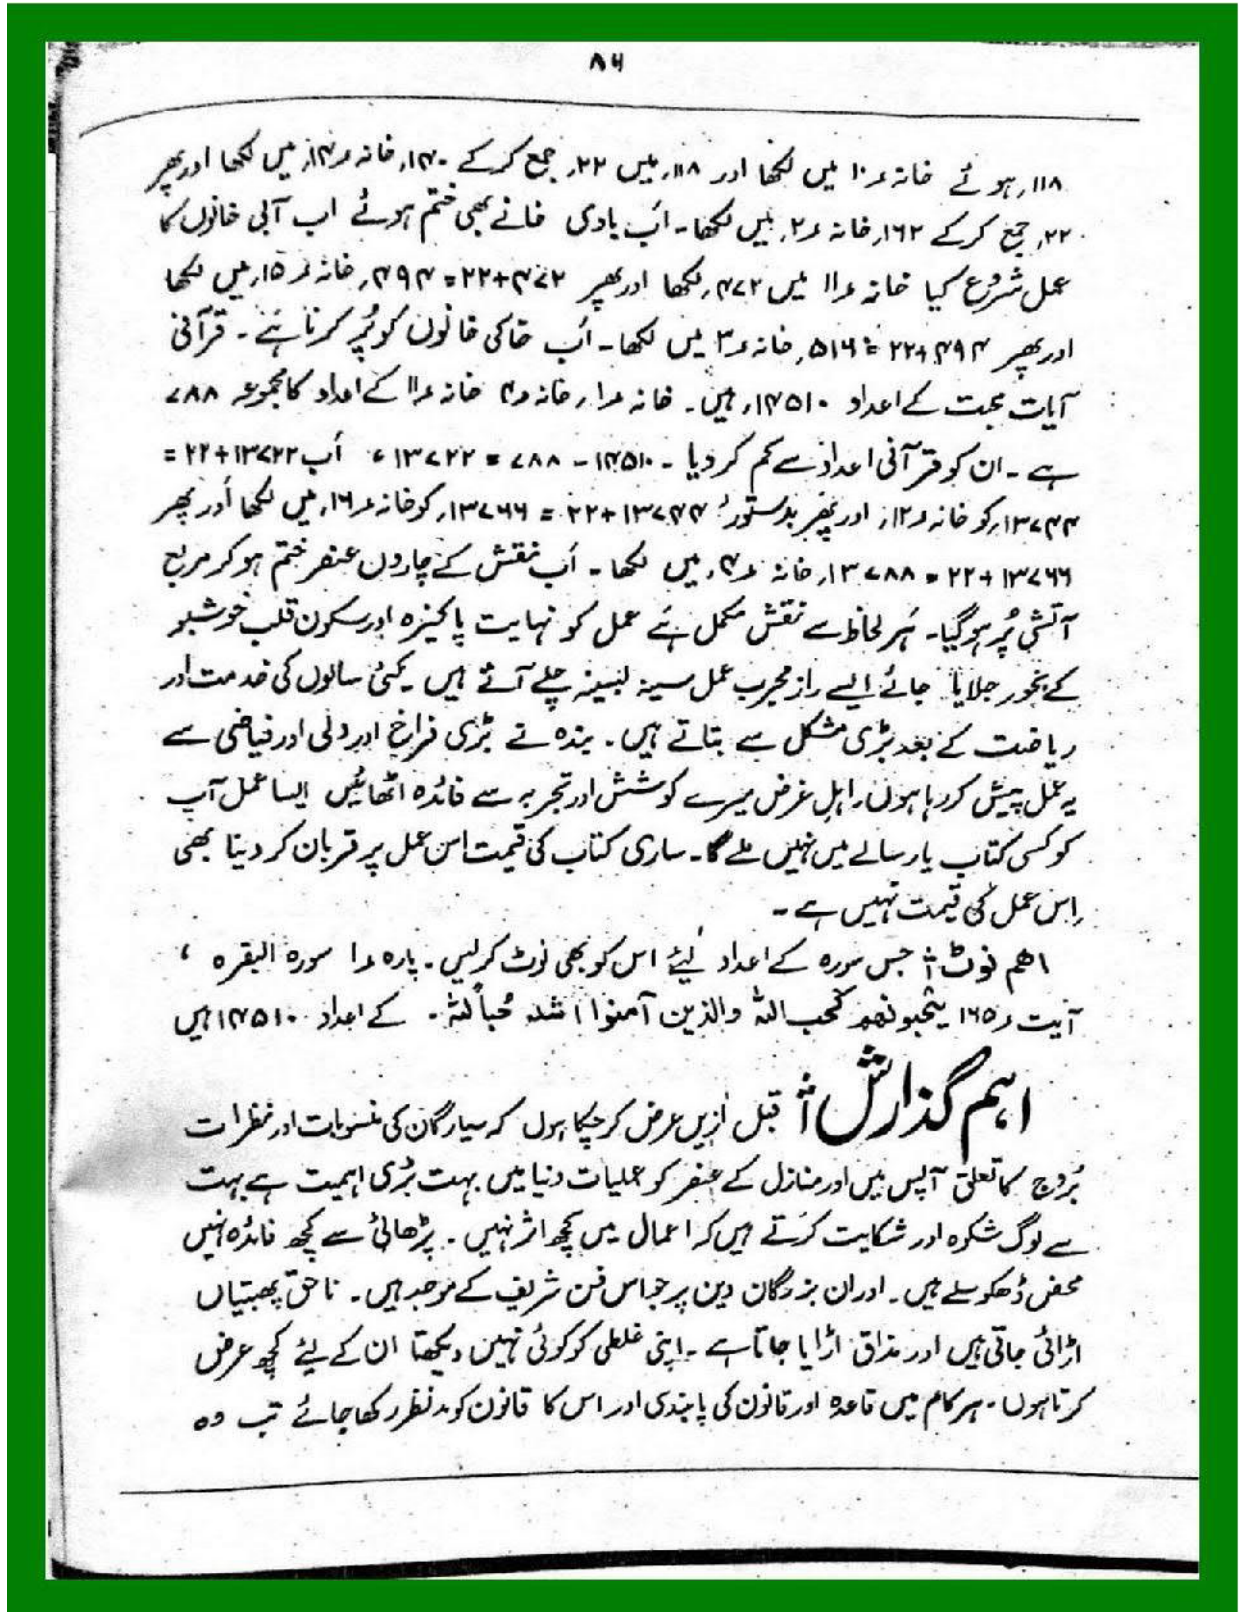 ۸۶
۱۱۸، ہوئے خانہ ۱۰ میں لکھا اور ۱۱۸، میں ۲۲، جمع کرکے ۱۴۰، خانہ ۱۴، میں لکھا اور پھر
۲۲، جمع کرکے ۱۶۲، خانہ ۲، میں لکھا۔ اَب بادی خانے بھی ختم ہوئے اب آبی خانوں کا
عمل شروع کیا خانہ ۱۱ میں ۴۷۲، لکھا اور پھر ۴۷۲+۲۲=۴۹۴، خانہ ۱۵، میں لکھا
اور پھر ۴۹۴+۲۲=۵۱۶، خانہ ۳ میں لکھا۔ اَب خاکی خانوں کو پُر کرنا ہَے۔ قرآنی
آیات محبت کے اعداد ۱۴۵۱۰، ہیں۔ خانہ ۱، خانہ ۶، خانہ ۱۱ کے اعداد کا مجموعہ ۷۸۸
ہے۔ ان کو قرآنی اعداد سے کم کر دیا۔ ۱۴۵۱۰ - ۷۸۸ = ۱۳۷۲۲، اَب ۱۳۷۲۲+۲۲=
۱۳۷۴۴، کو خانہ ۱۲، اور پھر بدستور ۱۳۷۴۴+۲۲ = ۱۳۷۶۶، کو خانہ ۱۶، میں لکھا اَور پھر
۱۳۷۶۶+۲۲ = ۱۳۷۸۸، خانہ ۴، میں لکھا۔ اَب نقش کے چاروں عنصر ختم ہوکر مربع
آتشی پُر ہوگیا۔ ہَر لحاظ سے نقش مکمل ہَے عمل کو نہایت پاکیزہ اور سکون قلب خوشبو
کے بخور جلایا جائے ایسے راز مجرب عمل سینہ بسینہ چلے آتے ہیں۔ کئی سالوں کی خدمت اور
ریاضت کے بعد بڑی مشکل سے بتاتے ہیں۔ بندہ نے بڑی فراخ اور دلی اور فیاضی سے
یہ عمل پیش کر رہا ہوں۔ اہل غرض میرے کوشش اور تجربہ سے فائدہ اٹھائیں ایسا عمل آپ
کو کسی کتاب یا رسالے میں نہیں ملے گا۔ ساری کتاب کی قیمت اس عمل پر قربان کر دینا بھی
اس عمل کی قیمت نہیں ہے۔
اھم نوٹ: جس سورہ کے اعداد لیئے اس کو بھی نوٹ کرلیں۔ پارہ ۱ سورہ البقرہ ،
آیت ۱۶۵ یُّحبونھم کحب اللہ والذین آمنوا اشد حُباً للہ۔ کے اعداد ۱۴۵۱۰ ہیں
اہم گذارش: قبل ازیں عرض کرچکا ہوں کہ سیارگان کی منسوبات اور نظرات
بُروج کا تعلق آپس میں اور منازل کے عنصر کو عملیات دنیا میں بہت بڑی اہمیت ہے بہت
سے لوگ شکوہ اور شکایت کرتے ہیں کہ اعمال میں کچھ اثر نہیں۔ پڑھائی سے کچھ فائدہ نہیں
محض ڈھکوسلے ہیں۔ اور ان بزرگان دین پر جو اس فن شریف کے موجد ہیں۔ ناحق پھبتیاں
اڑائی جاتی ہیں اور مذاق اڑایا جاتا ہے۔ اپنی غلطی کو کوئی نہیں دیکھتا ان کے لیئے کچھ عرض
کرتا ہوں۔ ہر کام میں قاعدہ اور قانون کی پابندی اور اس کا قانون کو مدنظر رکھا جائے تب وہ